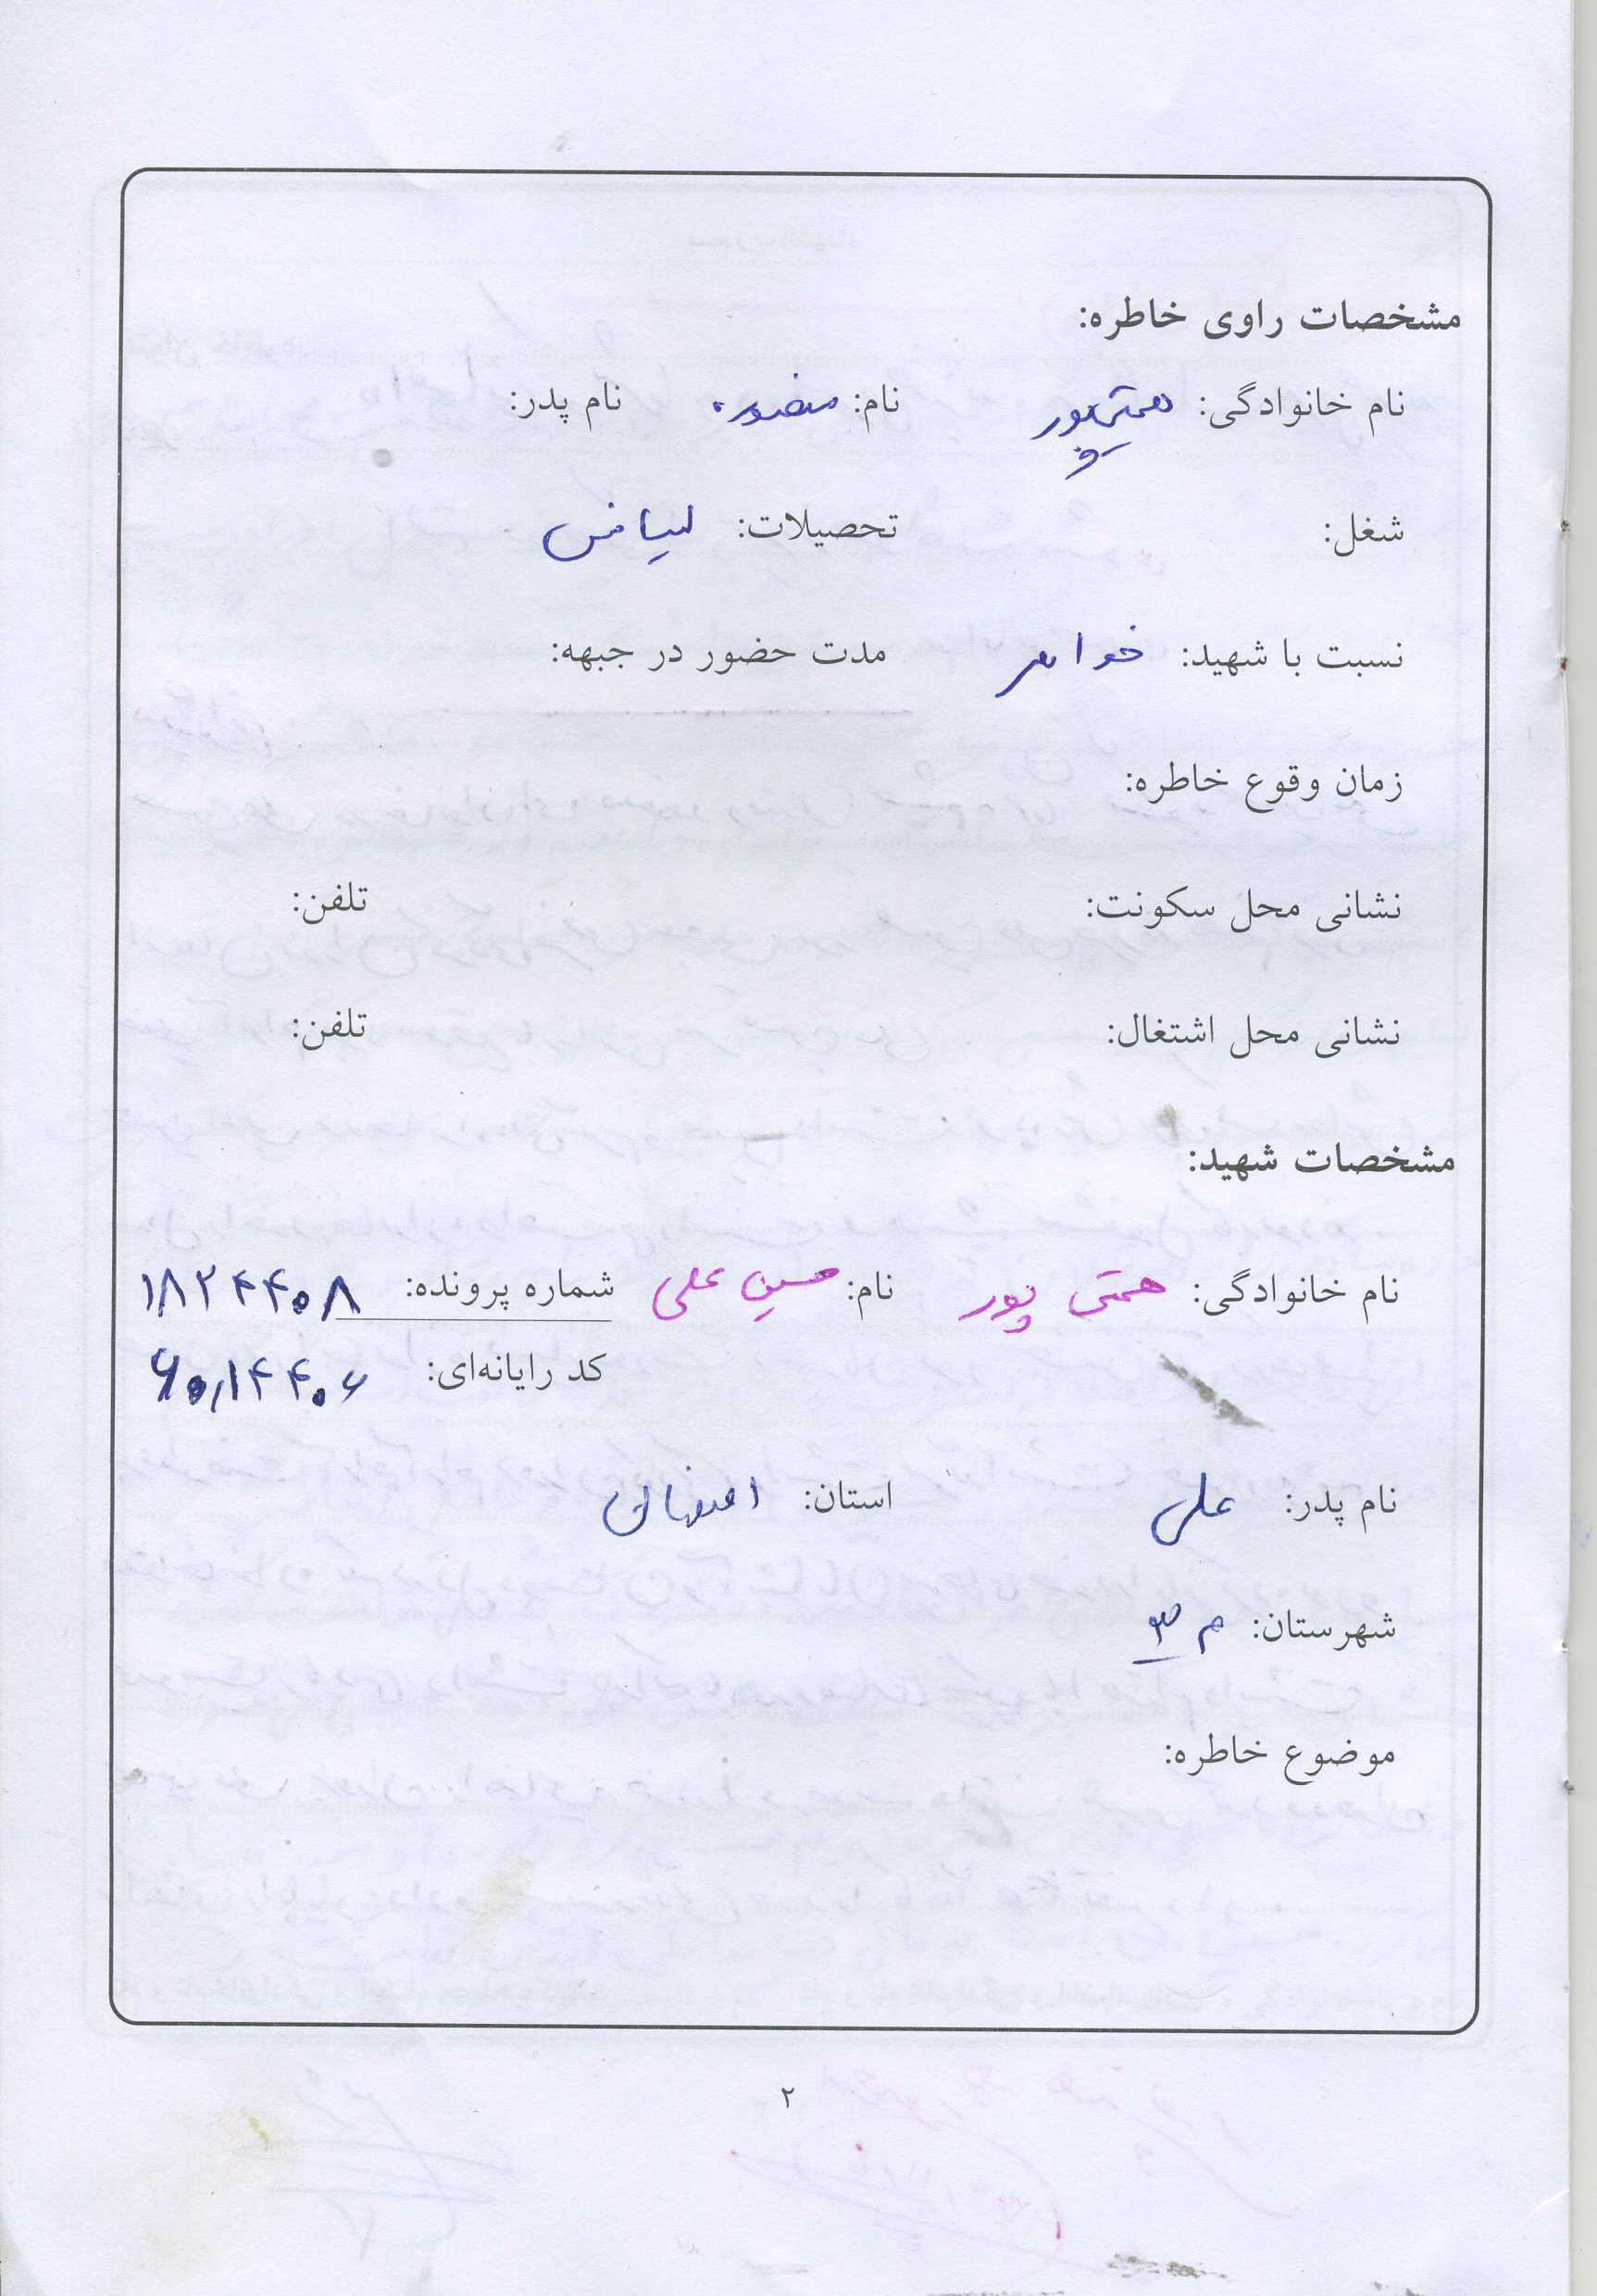 مشخصات راوی خاطره:
نام خانوادگی: همتی‌پور نام: منصوره نام پدر:
شغل: تحصیلات: لیسانس
نسبت با شهید: خواهر مدت حضور در جبهه:
زمان وقوع خاطره:
نشانی محل سکونت: تلفن:
نشانی محل اشتغال: تلفن:
مشخصات شهید:
نام خانوادگی: همتی پور نام: حسین علی شماره پرونده: ۱۸۲۴۴۰۸
کد رایانه‌ای:
نام پدر: علی استان: اصفهان
شهرستان: م ۳
موضوع خاطره:
۲